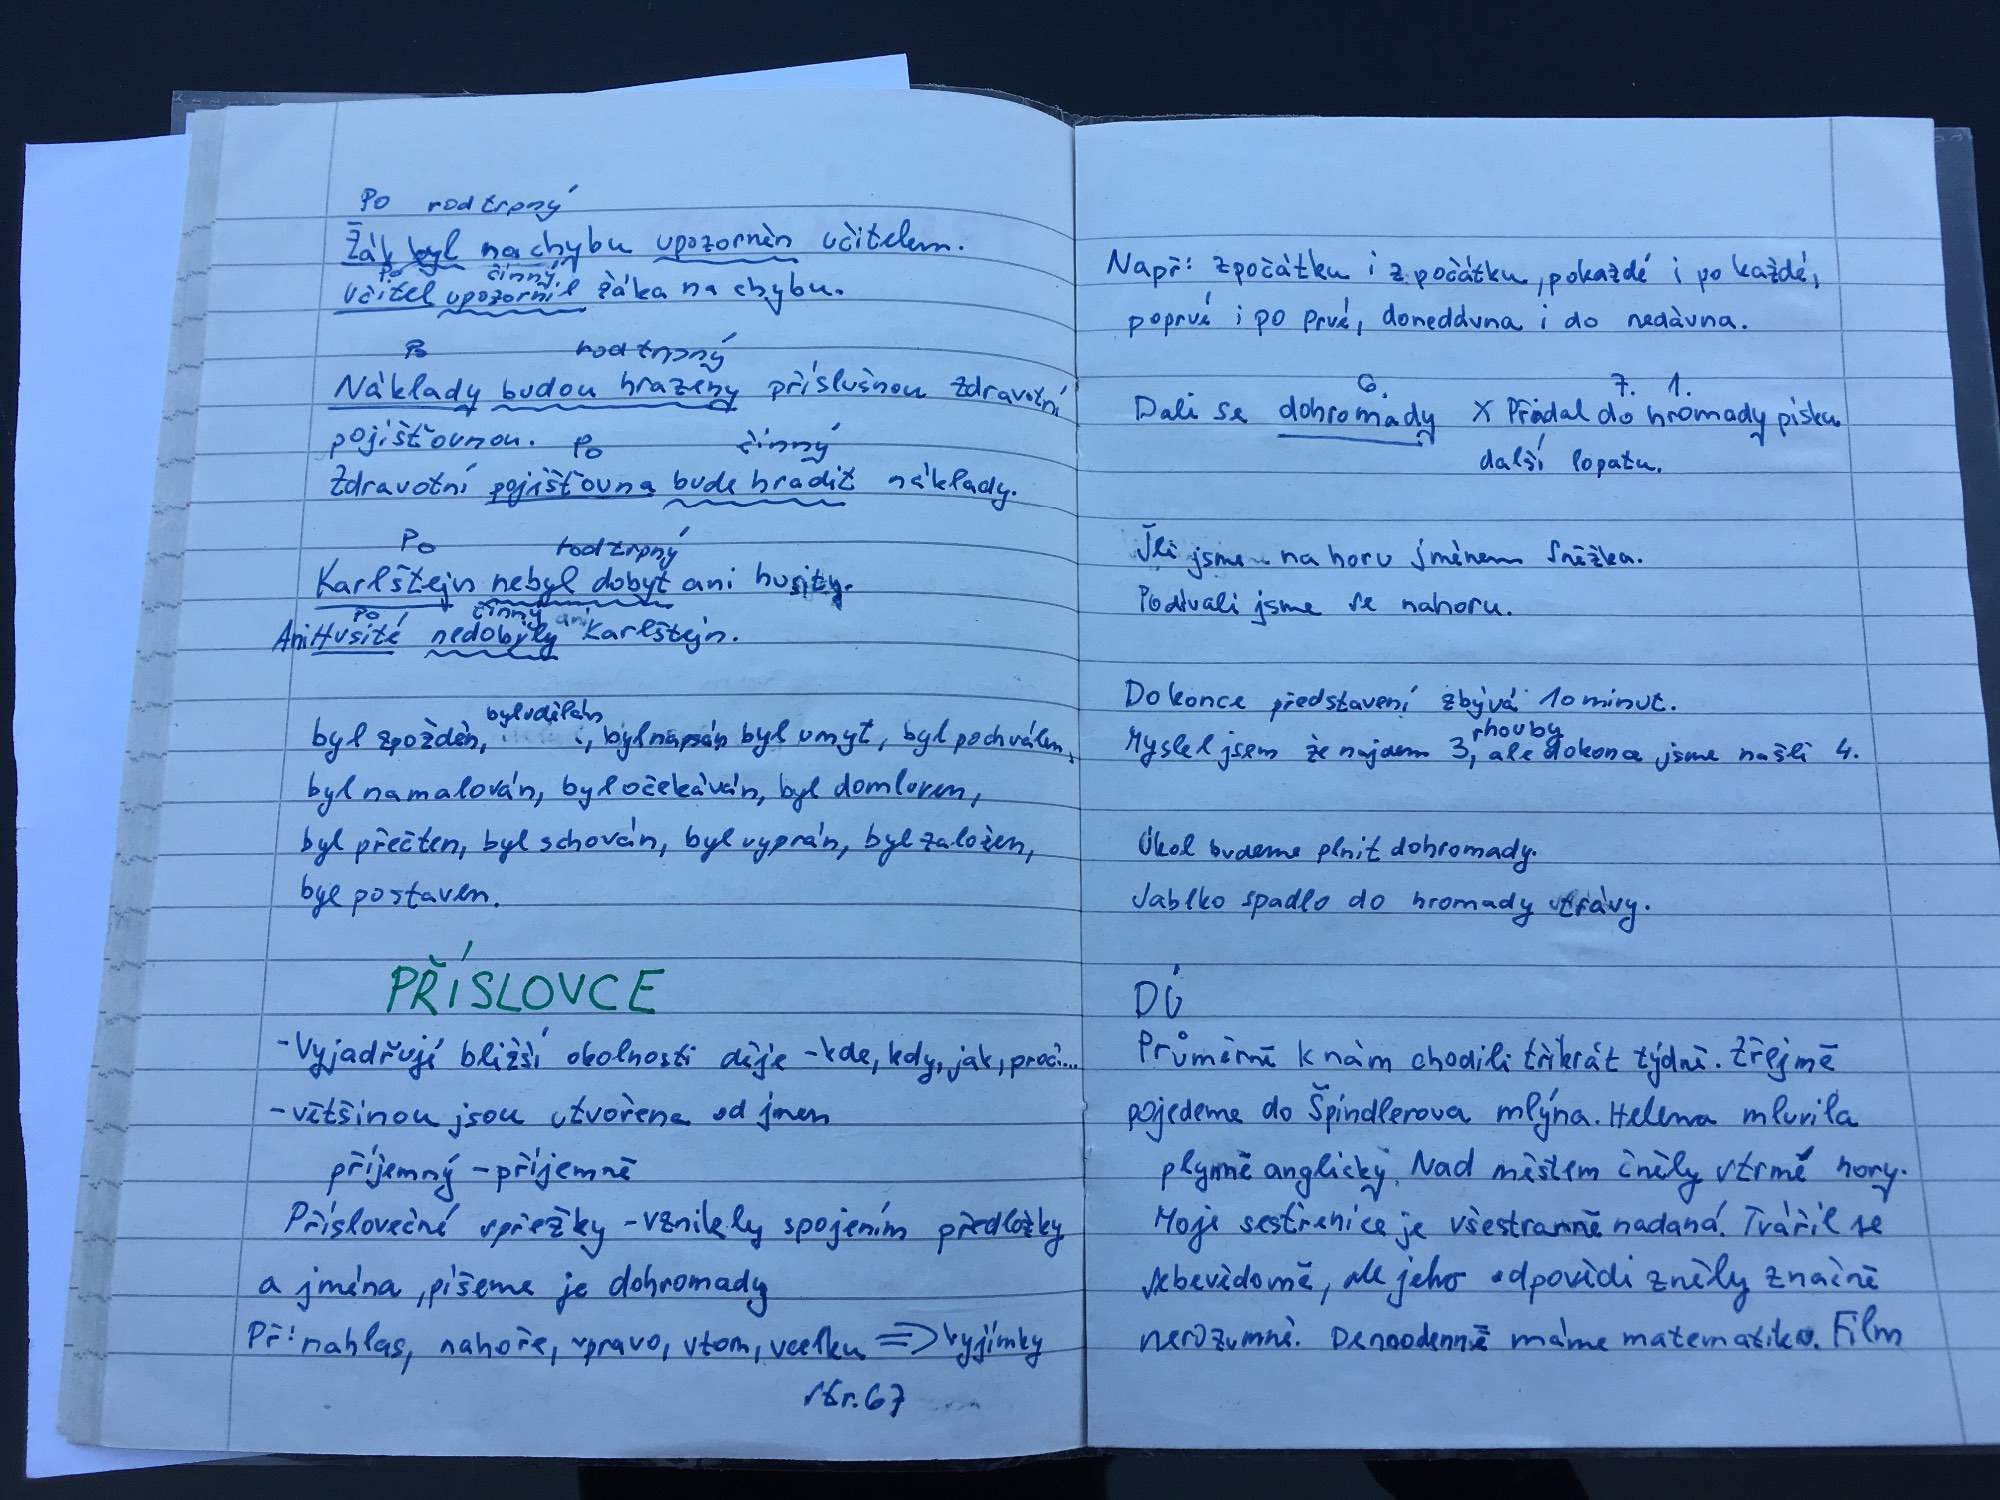 Po rod trpný
Žák byl na chybu upozorněn učitelem.
Po činný
Učitel upozornil žáka na chybu.
rod trpný
Náklady budou hrazeny příslušnou zdravotní
pojišťovnou.
Po činný
Zdravotní pojišťovna bude hradit náklady.
Po rod trpný
Karlštejn nebyl dobyt ani husity.
Po činný
Ani Husité nedobyly Karlštejn.
byl udělán
byl zpožděn, byl napsán byl umyt, byl pochválen,
byl namalován, byl očekáván, byl domluven,
byl přečten, byl schován, byl vyprán, byl založen,
byl postaven.
PŘÍSLOVCE
-Vyjadřují bližší okolnosti děje - kde, kdy, jak, proč...
-většinou jsou utvořena od jmen
příjemný - příjemně
Příslovečné spřežky - vznikly spojením předložky
a jména, píšeme je dohromady
Př: nahlas, nahoře, vpravo, vtom, vcelku => vyjímky
str. 67
Např: zpočátku i z počátku, pokaždé i po každé,
poprvé i po prvé, donedávna i do nedávna.
6. 7. 1.
Dali se dohromady X Přidal do hromady písku
další lopatu.
Šli jsme na horu jménem Sněžka.
Podívali jsme se nahoru.
Do konce představení zbývá 10 minut.
houby
Myslel jsem že najdem 3, ale dokonce jsme našli 4.
Úkol budeme plnit dohromady.
Jablko spadlo do hromady trávy.
DÚ
Průměrně k nám chodili třikrát týdně. Zřejmě
pojedeme do Špindlerova mlýna. Helena mluvila
plynně anglicky. Nad městem čněly strmě hory.
Moje sestřenice je všestranně nadaná. Tvářil se
sebevědomě, ale jeho odpovědi zněly značně
nerozumně. Dennodenně máme matematiku. Film